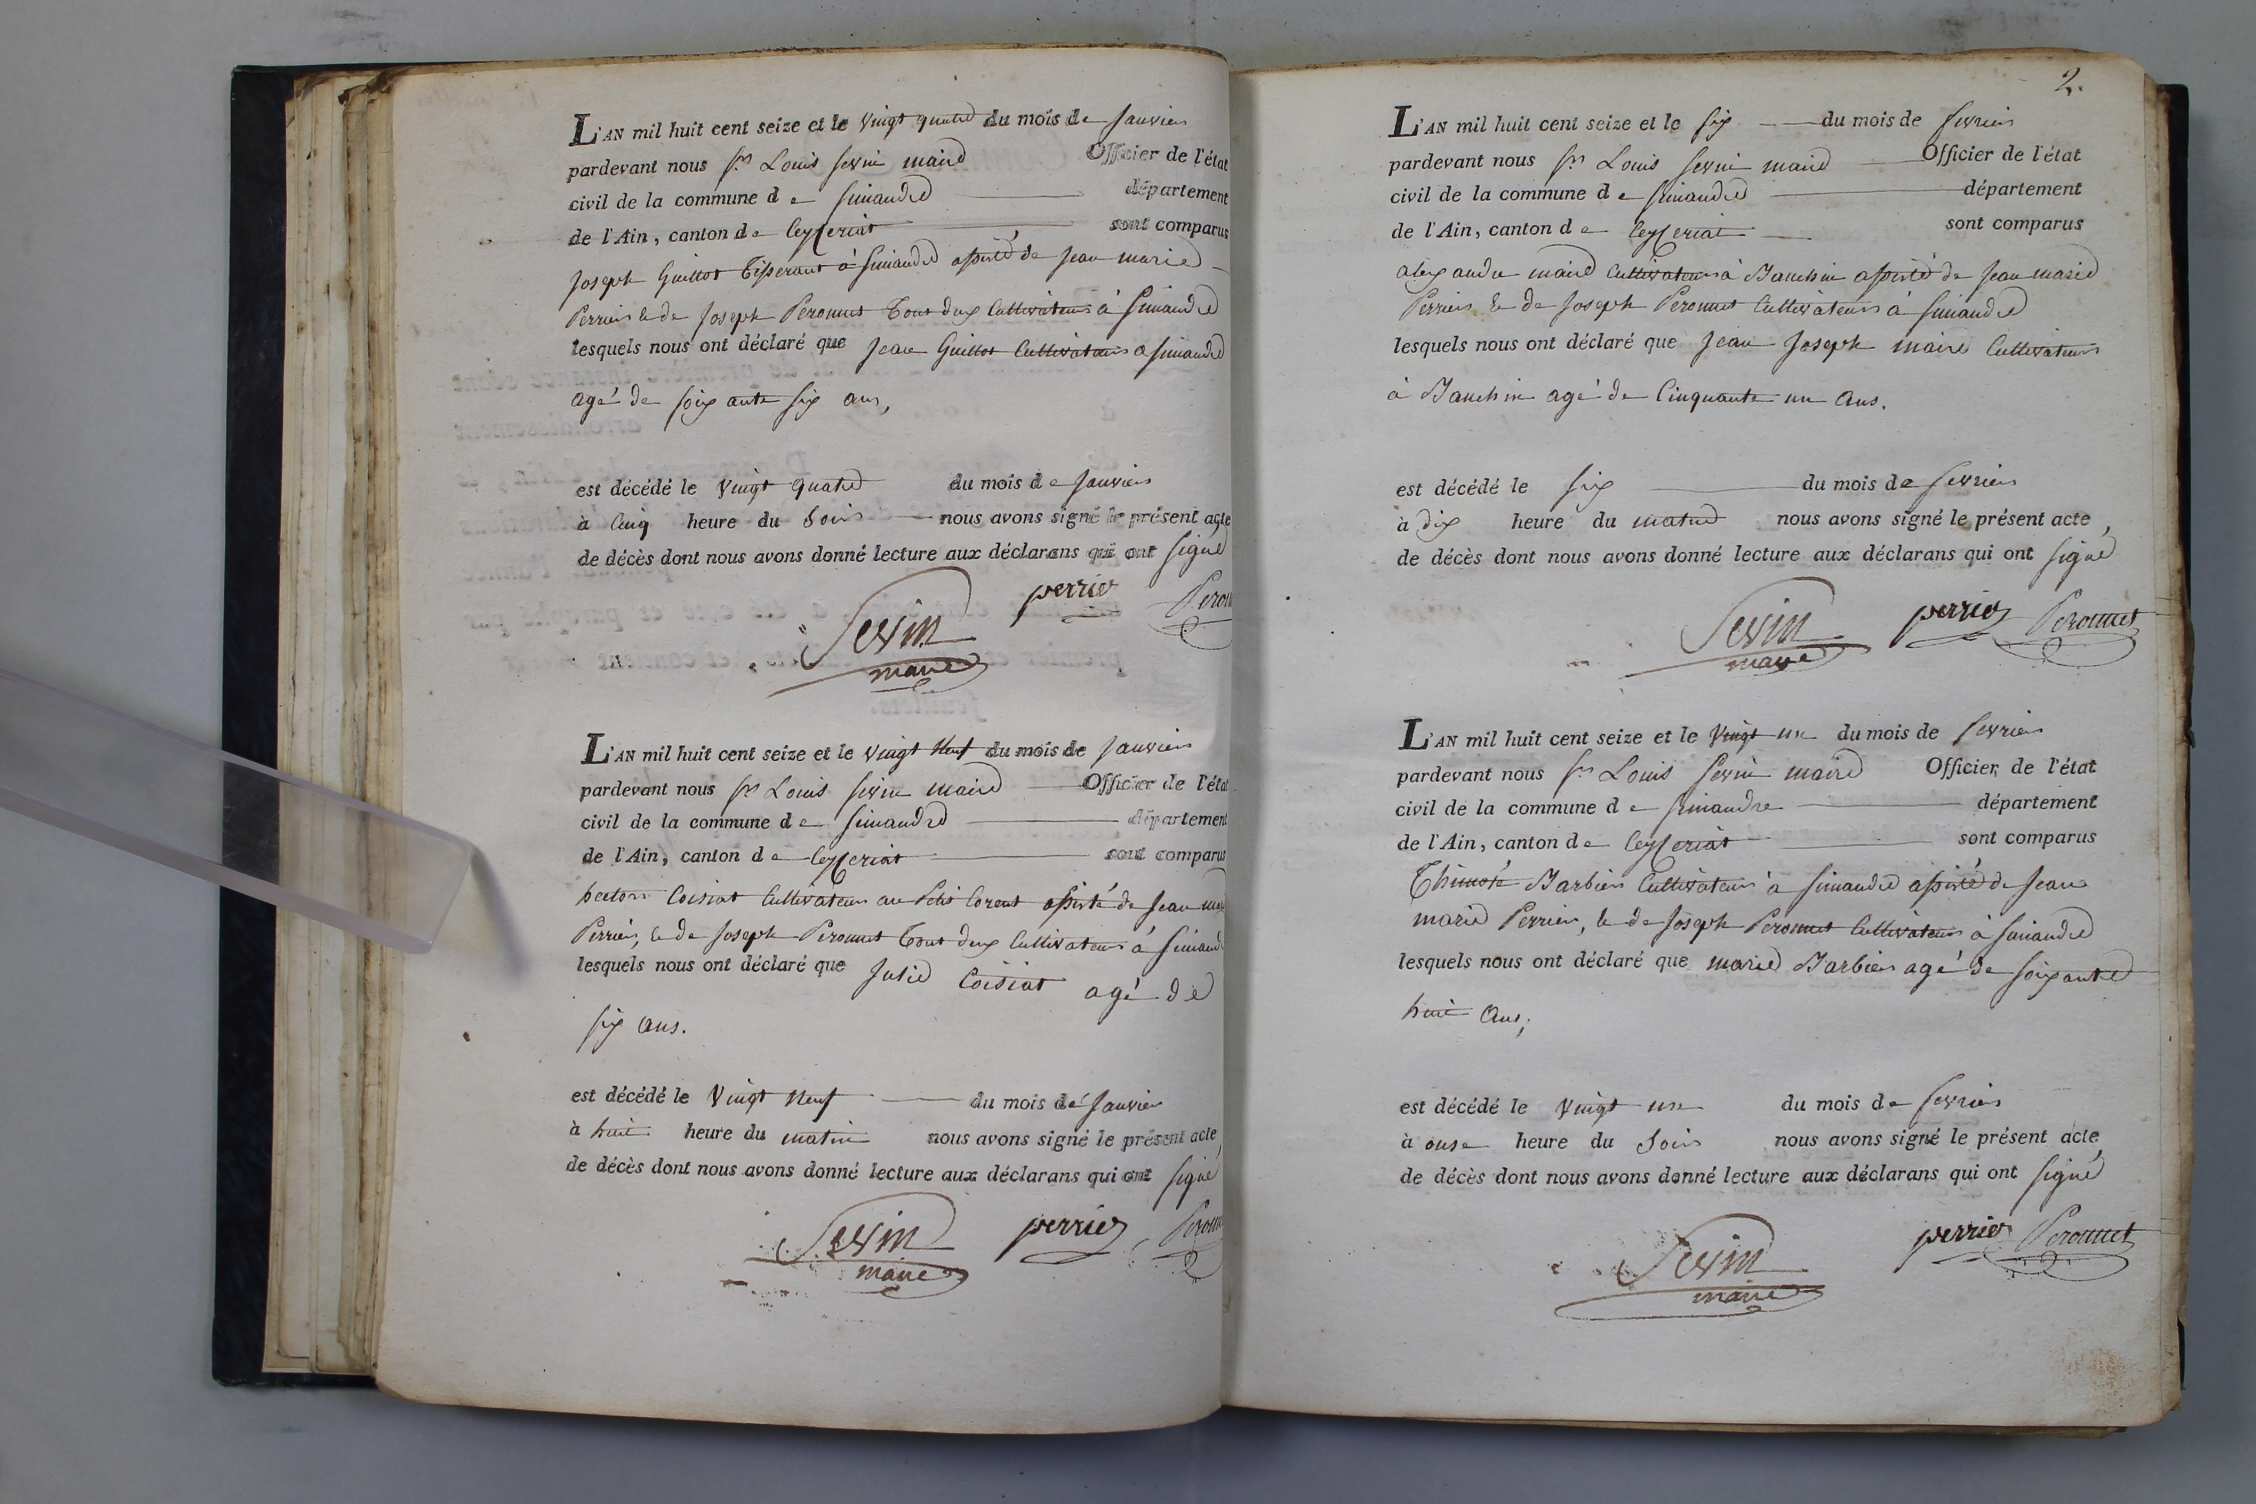 L'AN mil huit cent seize et le vingt quatre du mois de janvier
pardevant nous Sr Louis Sevin maire Officier de l'état
civil de la commune de Simandre département
de l'Ain, canton de Ceyseriat sont comparus
Joseph Guillot Tisserant à Simandre assisté de Jean marie
Perrier & de Joseph Peronnet Tout deux Cultivateurs à Simandre
lesquels nous ont déclaré que Jean Guillot Cultivateur a Simandre
agé de soixante six ans,
est décédé le vingt quatre du mois de janvier
à Cinq heure du Soir nous avons signé le présent acte
de décès dont nous avons donné lecture aux déclarans qui ont signé
Sevin perrier Peronn
maire
L'AN mil huit cent seize et le vingt neuf du mois de janvier
pardevant nous Sr Louis Sevin maire Officier de l'état
civil de la commune de Simandre département
de l'Ain, canton de Ceyseriat sont comparus
Coisiat Cultivateur au Petit Corent assisté de Jean
Perrier, & de Joseph Peronnet Tout deux Cultivateurs à Simand
lesquels nous ont déclaré que Coisiat agé de
six ans.
est décédé le vingt neuf du mois de janvier
à huit heure du matin nous avons signé le présent acte,
de décès dont nous avons donné lecture aux déclarans qui ont signé
Sevin perrier Peronn
maire
2.
L'AN mil huit cent seize et le six du mois de fevrier
pardevant nous Sr Louis Sevin maire Officier de l'état
civil de la commune de Simandre département
de l'Ain, canton de Ceyseriat sont comparus
alexandre maire Cultivateur à Banchin assisté de Jean marie
Perrier & de Joseph Peronnet Cultivateurs à Simandre
lesquels nous ont déclaré que Jean Joseph maire Cultivateur
à Banchin agé de Cinquante un ans.
est décédé le six du mois de fevrier
à dix heure du matin nous avons signé le présent acte,
de décès dont nous avons donné lecture aux déclarans qui ont signé
Sevin perrier Peronnet
maire
L'AN mil huit cent seize et le vingt un du mois de fevrier
pardevant nous Sr Louis Sevin maire Officier de l'état
civil de la commune de Simandre département
de l'Ain, canton de Ceyseriat sont comparus
Thimoté Barbier Cultivateur à Simandre assisté de Jean
marie Perrier, & de Joseph Peronnet Cultivateurs à Simandre
lesquels nous ont déclaré que marie Barbier agé de soixante
huit ans,
est décédé le vingt un du mois de fevrier
à onse heure du Soir nous avons signé le présent acte
de décès dont nous avons donné lecture aux déclarans qui ont signé
Sevin perrier Peronnet
maire